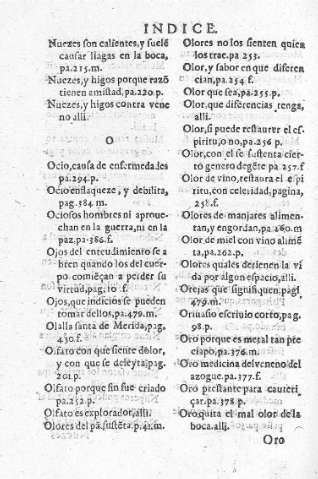 INDICE.
Nuezes son calientes, y suelẽ
causar llagas en la boca,
pa.215.m.
Nuezes, y higos porque razõ
tienen amistad, pa.220 p.
Nuezes, y higos contra vene
no alli.
O
Ocio, causa de enfermedades
pa.294.p.
Ocio enflaqueze, y debilita,
pag.384 m.
Ociosos hombres ni aproue-
chan en la guerra, ni en la
paz.pa.386.f.
Ojos del entendimiento se a
bren quando los del cuer-
po comiẽçan a perder su
virtud, pag.
Ojos, que indicios se pueden
tomar dellos, pa.479.m.
Olalla santa de Merida, pag.
430.f.
Olfato con que siente olor,
y con que se deleyta, pag.
201.p.
Olfato porque fin fue criado
pa.252.p.
Olfato es explorador, alli.
Olores del pã.sustẽta.p.42.m.
Olores no los sienten quien
los trae.pa 253.
Olor, y sabor en que diferen
cian, pa.254 f.
Olor que sea, pa.255.p.
Olor, que diferencias tenga,
alli.
Olor, si puede restaurer el es-
piritu, o no, pa.256 p.
Olor, con el se sustenta cier-
to genero de gẽte pa 257.f
Olor de vino, restaura el espi
ritu, con celeridad, pagina,
258.f.
Olores de manjares alimen-
tan, y engordan, pa.260.m
Olor de miel con vino alimẽ
ta, pa.262.p.
Olores quales detienen la vi
da por algun espacio, alli.
Orejas que signifiquen, pagi
479.m.
Oriuasio escriuio corto, pag.
98.p.
Oro porque es metal tan pre
ciado, pa.376.m.
Oro medicina del veneno del
azogue.pa.377.f.
Oro prestante para cauteri-
çar.pa.378 p.
Oro quita el mal olor de la
boca.alli.
Oro